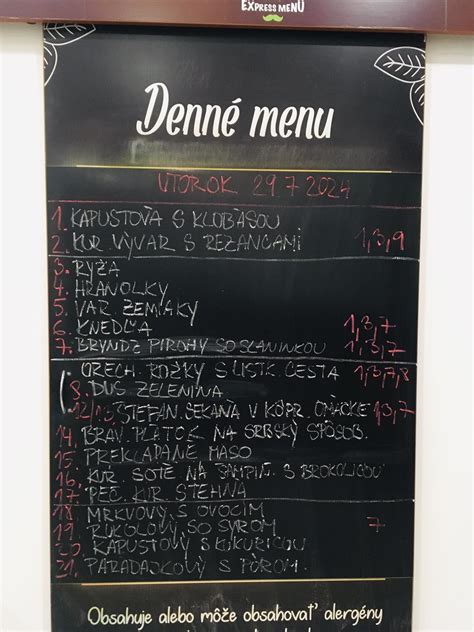 EXPRESS MENU
Denné menu
UTOROK 29.7.2024
1. KAPUSTOVÁ S KLOBÁSOU
2. KUR. VÝVAR S REZANCAMI 1,3,9
3. RYŽA
4. HRANOLKY
5. VAR. ZEMIAKY
6. KNEDĽA 1,3,7
7. BRYNDZ. PIROHY SO SLANINKOU 1,3,7
ORECH. ROŽKY S LISTK. CESTA 1,3,7,8
8. DUS. ZELENINA
12/13. ŠTEFAN. SEKANÁ V KÔPR. OMÁČKE 1,3,7
14. BRAV. PLÁTOK NA SRBSKÝ SPÔSOB.
15. PREKLADANÉ MÄSO
16. KUR. SOTÉ NA ŠAMPIŇ. S BROKOLICOU
17. PEČ. KUR. STEHNÁ
18. MRKVOVÝ S OVOCÍM
19. RUKOLOVÝ SO SYROM 7
20. KAPUSTOVÝ S KUKURICOU
21. PARADAJKOVÝ S PÓROM.
Obsahuje alebo môže obsahovať alergény